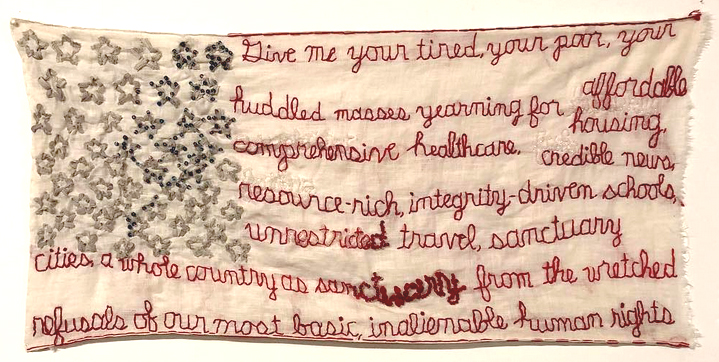 Give me your tired, your poor, your
huddled masses yearning for affordable
housing,
comprehensive healthcare, credible news,
resource-rich, integrity-driven schools,
unrestricted travel, sanctuary
cities, a whole country as sanctuary from the wretched
refusals of our most basic, inalienable human rights